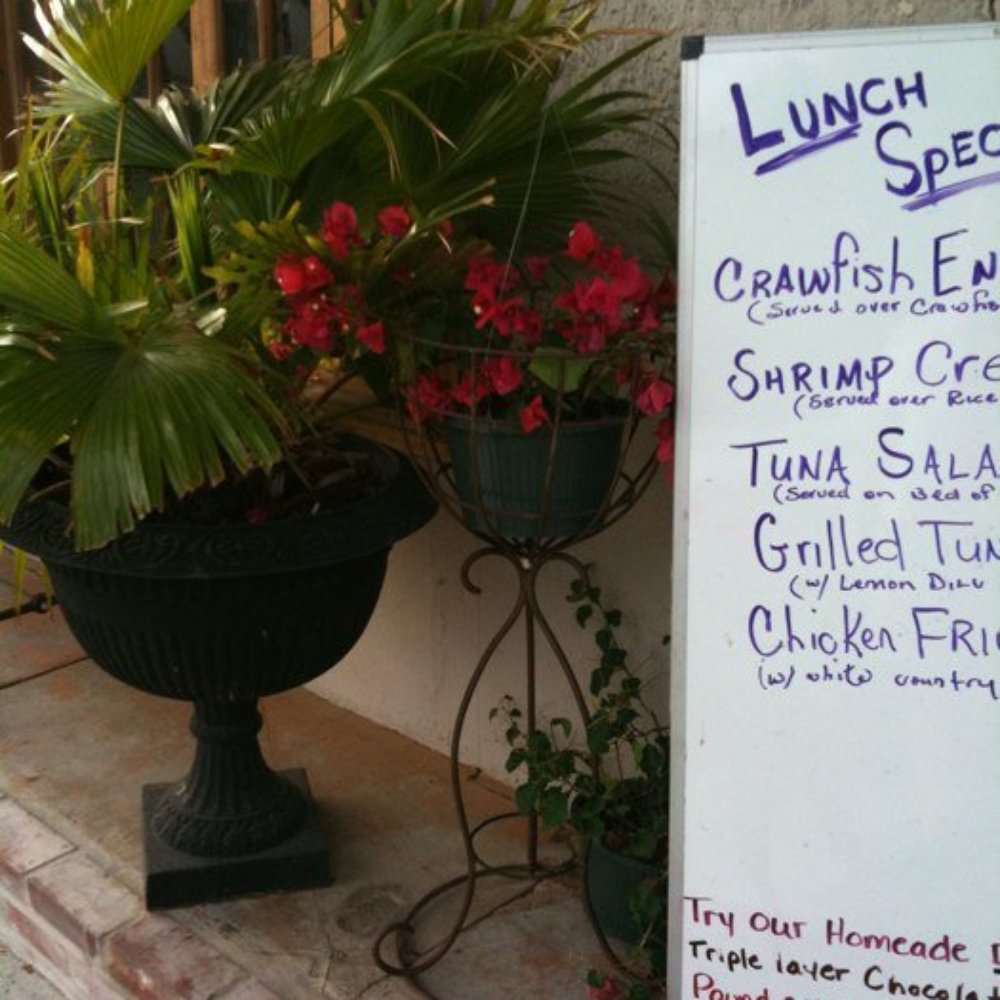 LUNCH
SPEC
CRAWfish EN
(Served over Crawfis
SHRIMP Cre
(Served over Rice
TUNA SALA
(Served on Bed of
Grilled TUN
(w/ Lemon DILL
Chicken FRIE
(w/ white country
Try our Homeade D
Triple layer Chocolat
Pound